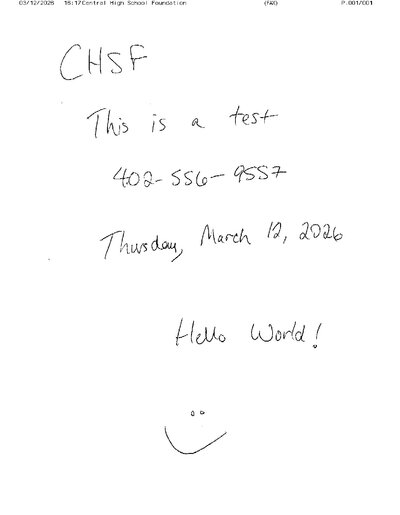 03/12/2026 16:17 Central High School Foundation (FAX) P.001/001
CHSF
This is a test
402-556-9557
Thursday, March 12, 2026
Hello World!